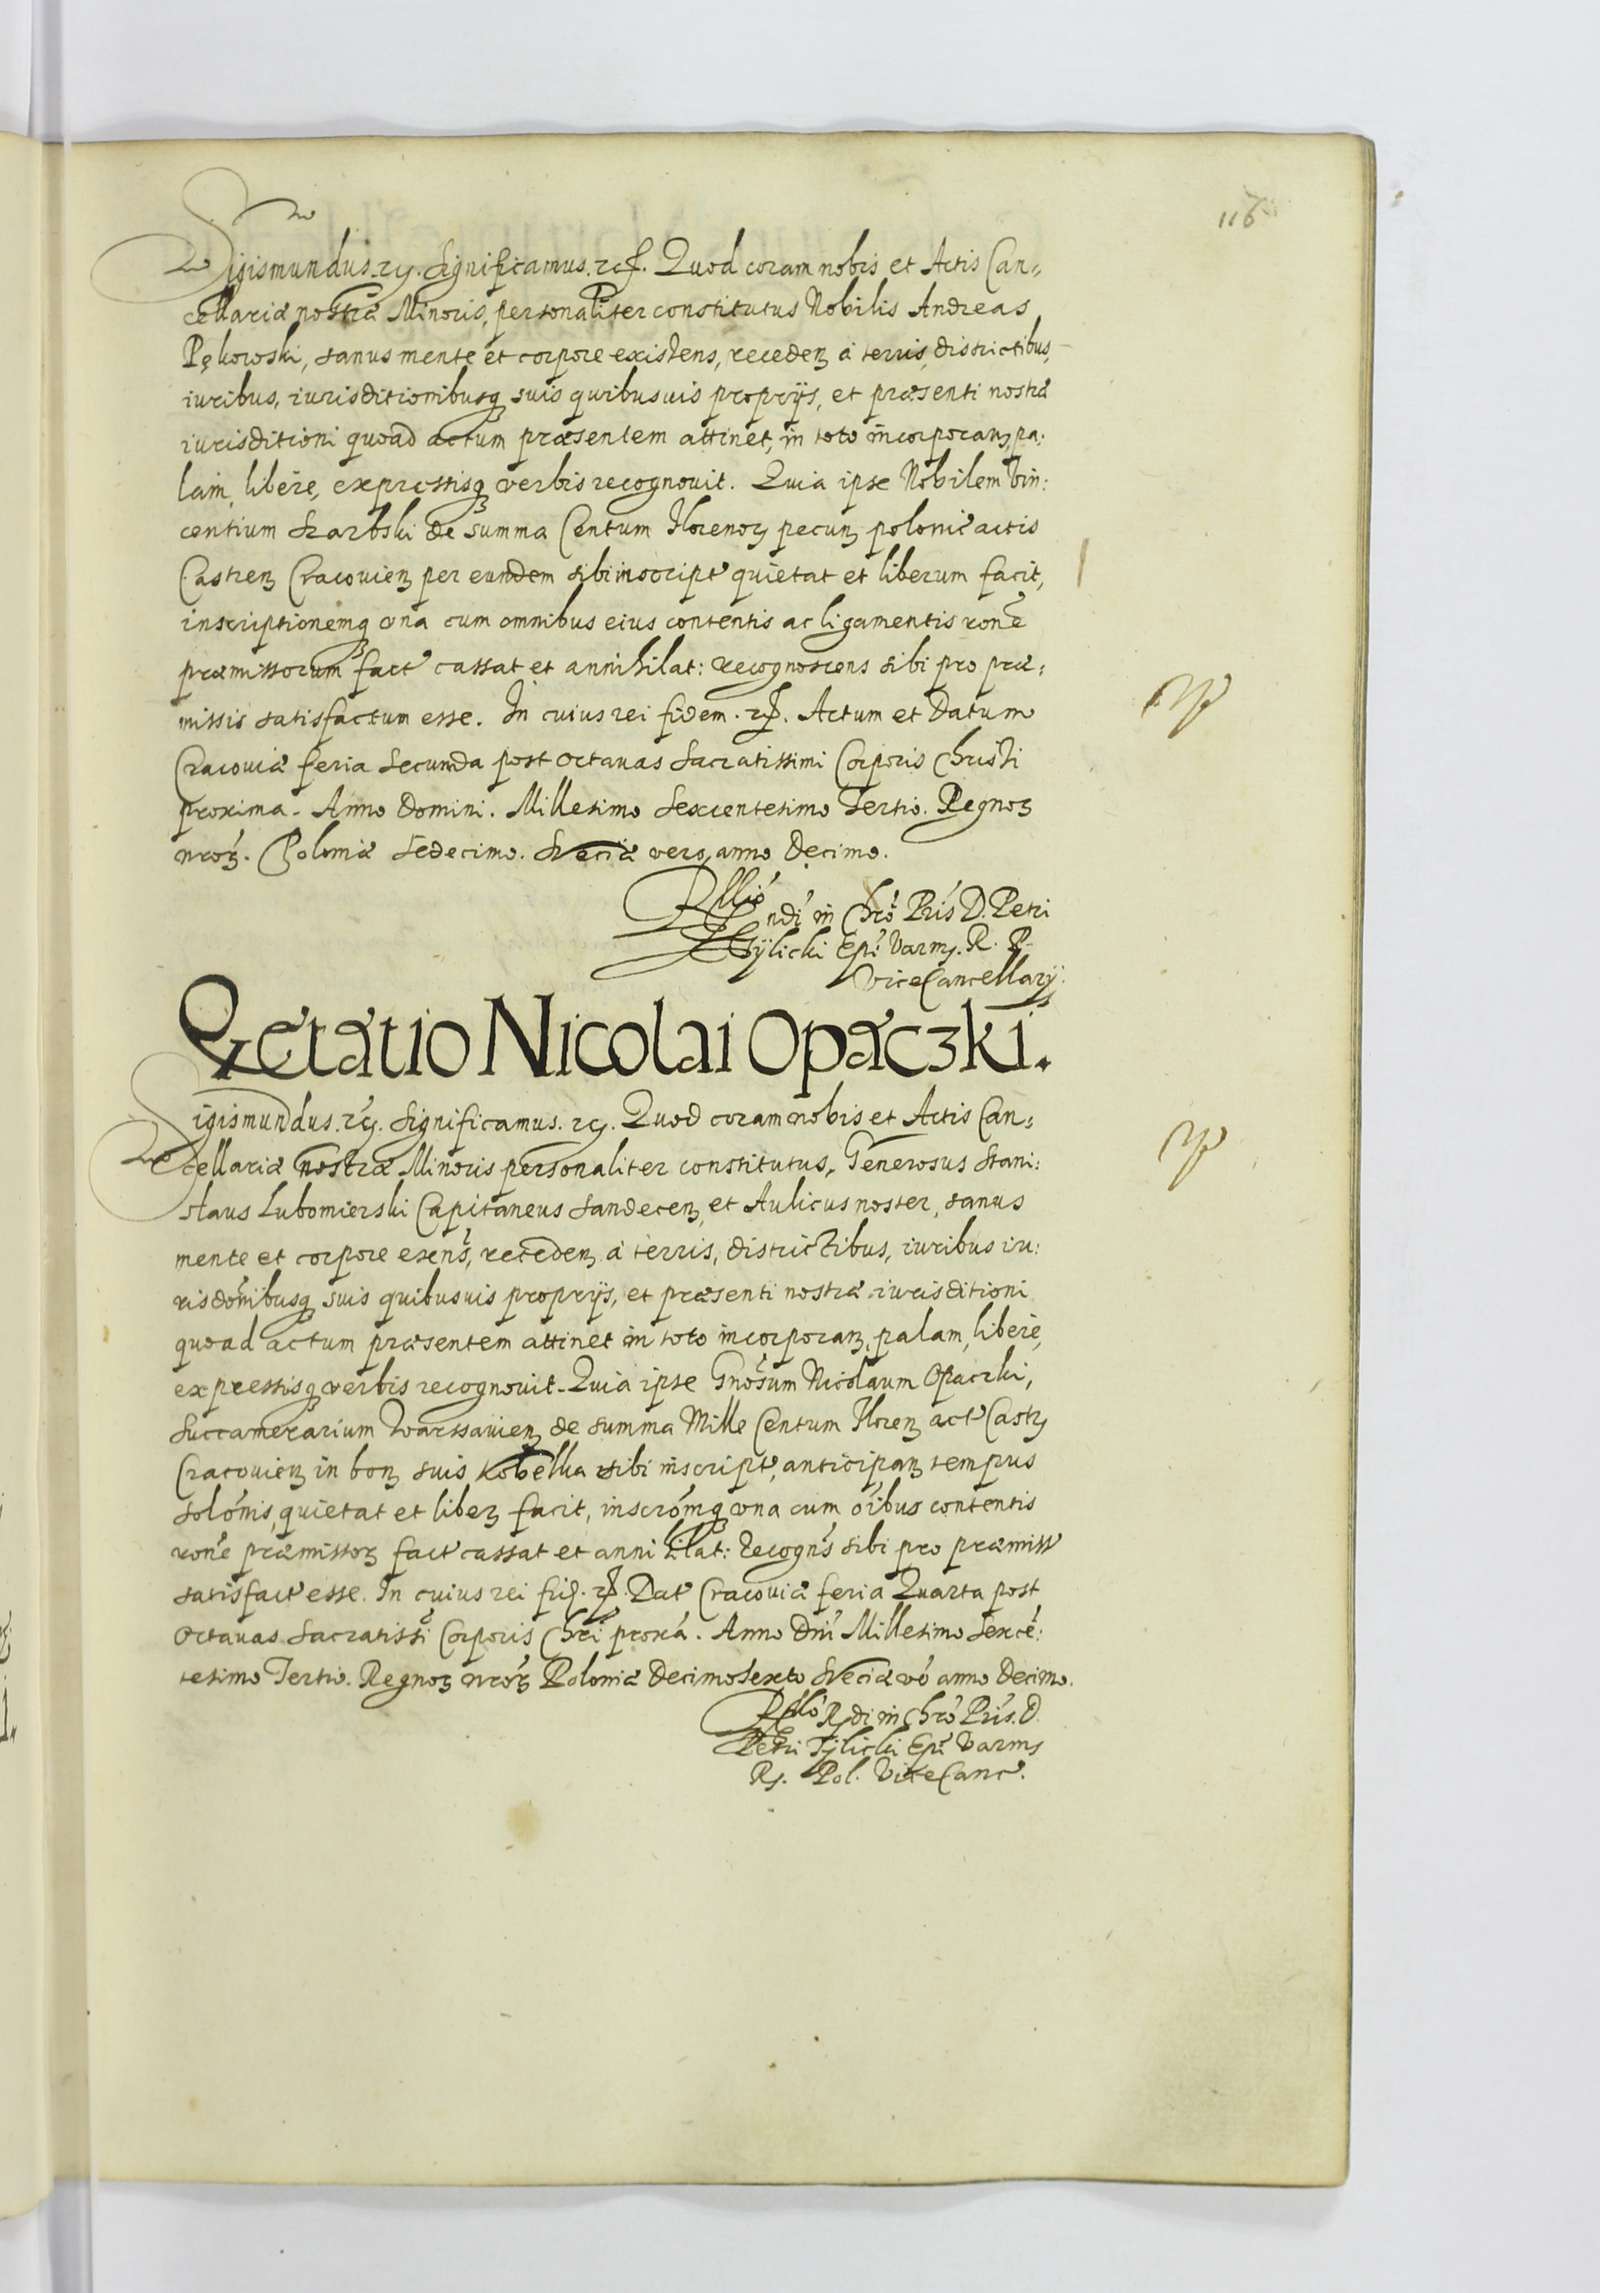 116
Sigismundus etc. Significamus etc. Quod coram nobis et Actis Can=
cellariæ nostræ Minoris, personaliter constitutus Nobilis Andreas
Pękowski, sanus mente et corpore existens, receden á terris, districtibus,
iuribus, iurisditionibusq suis quibusuis proprijs, et præsenti nostræ
iurisditioni quoad actum præsentem attinet, in toto incorporan, pa:
lam, libere, expressisq verbis recognouit. Quia ipse Nobilem Vin:
centium Skarbski de summa Centum Florenor pecun polonic actis
Castren Cracouien per eundem sibi inscript quietat et liberum facit,
inscriptionemq vna cum omnibus eius contentis ac ligamentis rone
præmissorum fact cassat et annihilat: recognoscens sibi pro præ:
missis satisfactum esse. In cuius rei fidem. etc. Actum et Datum
Cracouiæ feria Secunda post octauas Sacratissimi Corporis Christi
proxima. Anno Domini. Millesimo Sexcentesimo Tertio. Regnor
nror. Poloniæ Sedecimo. Sveciæ vero anno Decimo.
Rllio
ndi in Chro Pris D. Petri
Tÿlicki Epi Varm. R. P.
ViceCancellarÿ
Qetatio Nicolai Opaczki.
Sigismundus. etc. Significamus. etc. Quod coram nobis et Actis Can=
cellariæ nostræ Minoris personaliter constitutus, Generosus Stani:
slaus Lubomierski Capitaneus Sandecen, et Aulicus noster, sanus
mente et corpore exens, receden á terris, districtibus, iuribus iu:
risdonibusq suis quibusuis proprijs, et præsenti nostræ iurisditioni
quoad actum præsentem attinet in toto incorporan, palam, libere,
expressisq verbis recognouit. Quia ipse Gnosum Nicolaum Opaczki,
Succamerarium Warssauien de summa Mille Centum Floren act Castr
Cracouien in bon suis Kobellka sibi inscript, anticipan tempus
solonis, quietat et liber facit, inscromq vna cum oibus contentis
rone præmissor fact cassat et annihilat: Recogns sibi pro præmiss
satisfact esse. In cuius rei fid. etc. Dat Cracouiæ feria Quarta post
Octauas Sacratissi Corporis Chri proxa. Anno Dni Millesimo Sexce:
tesimo Tertio. Regnor nror Poloniæ DecimoSexto Sveciæ vo anno Decimo.
Rllo Rdi in Chro Pris. D.
Petri Tÿlicki Epi Varm
R. Pol. ViceCanc.